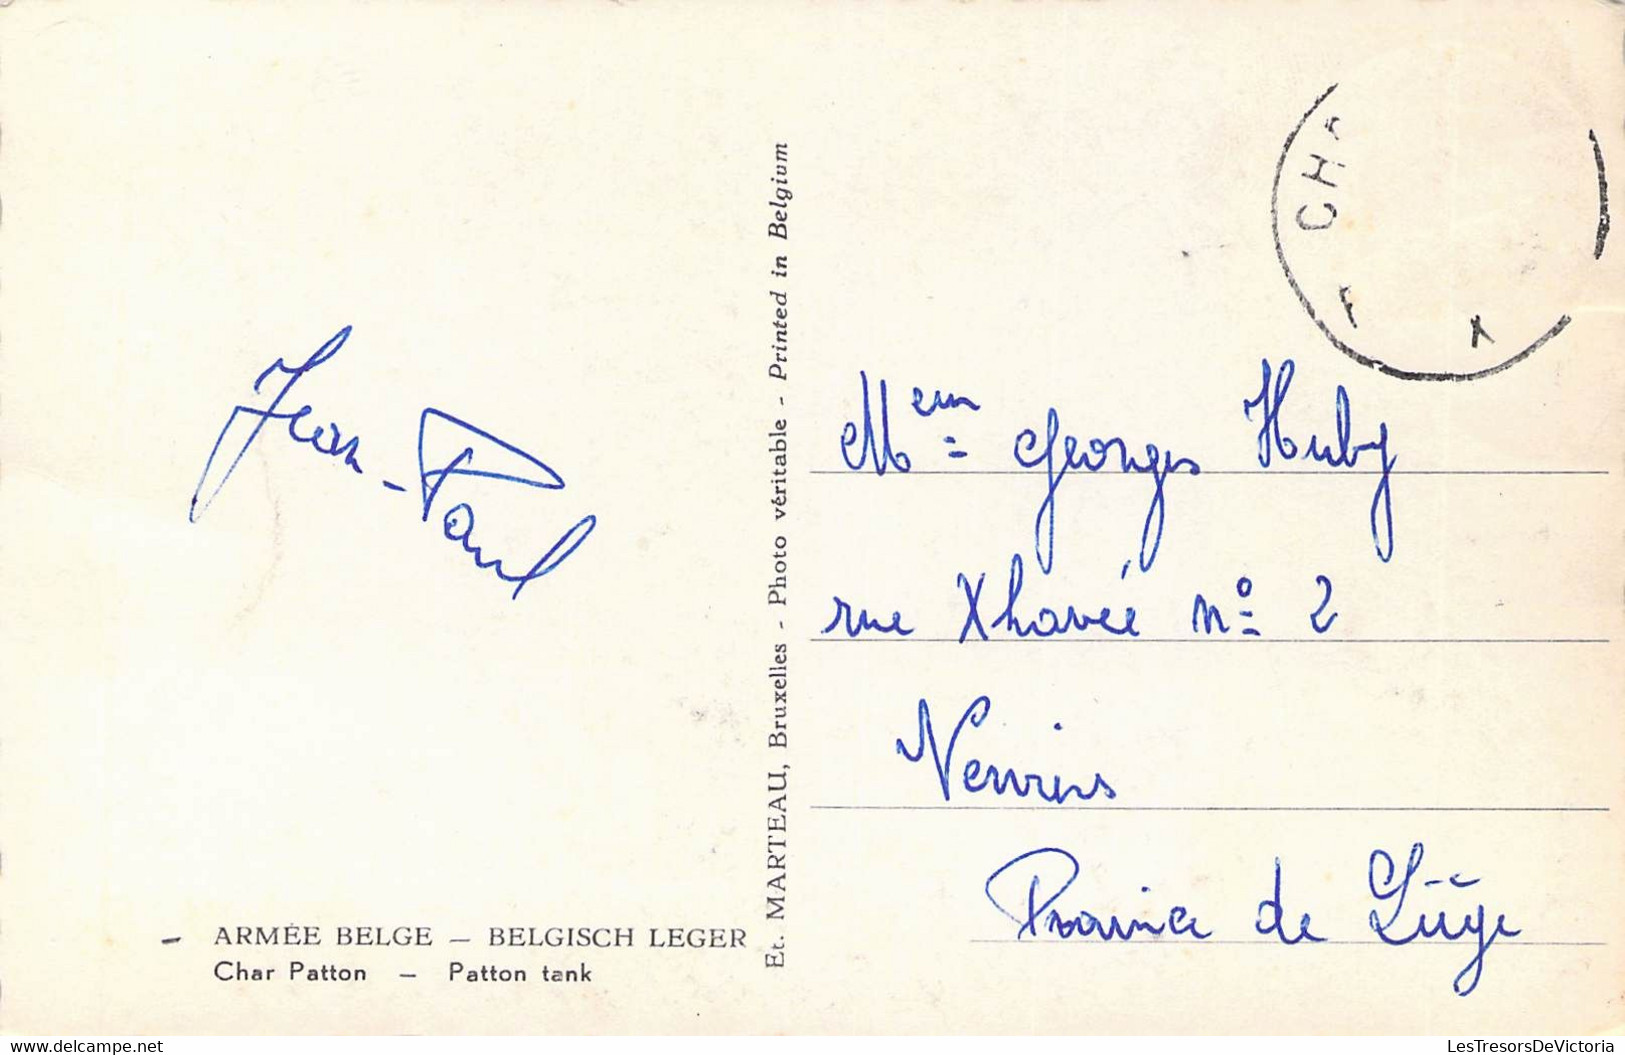 CHA
F X
Jean-Paul
Mem Georges Huby
rue Xhavée n° 2
Verviers
Province de Liège
Et. MARTEAU, Bruxelles - Photo véritable - Printed in Belgium
– ARMÉE BELGE – BELGISCH LEGER
Char Patton – Patton tank
www.delcampe.net
LesTresorsDeVictoria